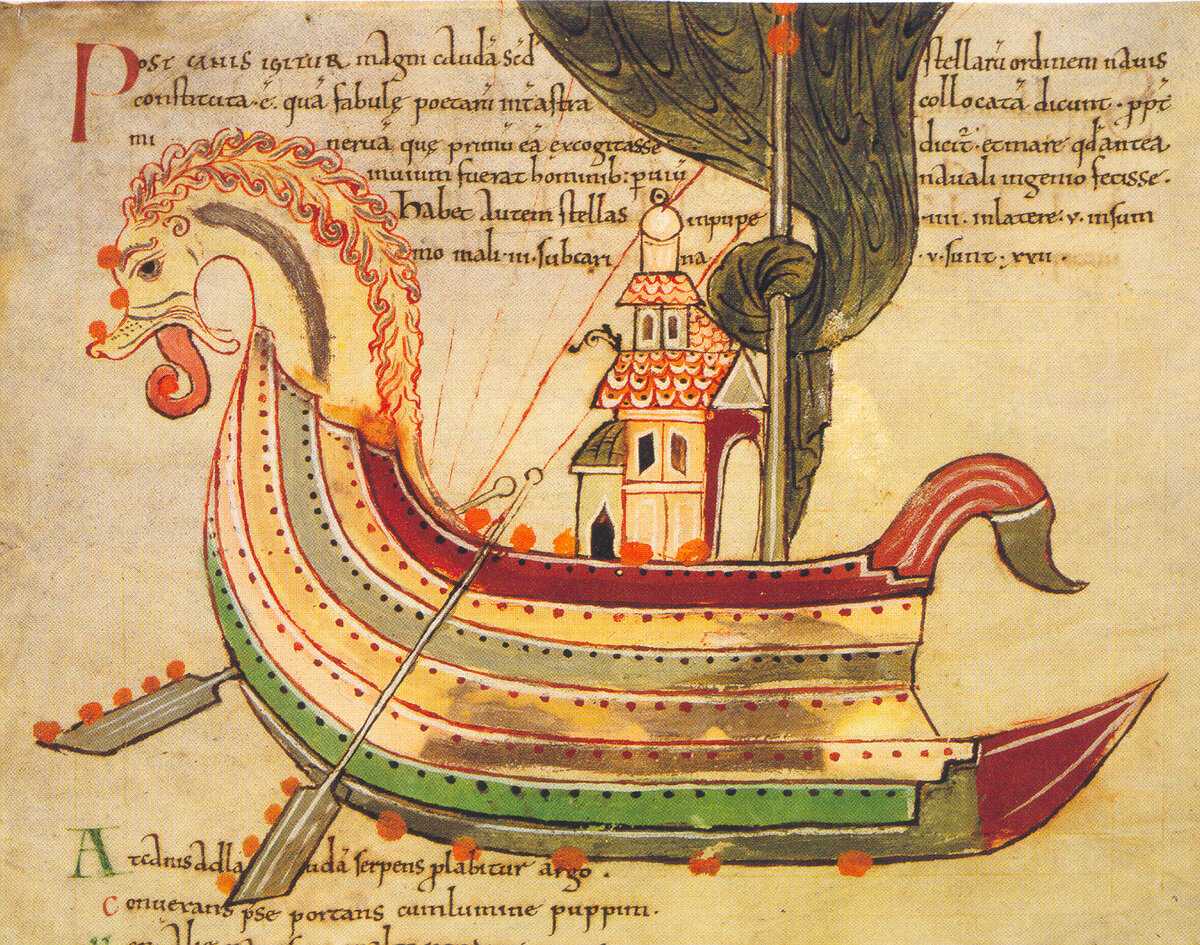 POST CANIS IGITUR magni caudā sēd stellarū ordinem nauis
constituta .ē. quā fabulę poetarū int astra collocatā dicunt . ppt
mineruā quę primū eā excogitasse dicit . et mare qd antea
inuium fuerat hominib: puiū nauali ingenio fecisse .
Habet autem stellas in pupe .iiii. in latere .v. in sum
mo mali .iii. sub carina .v. sunt .xxii.
At canis ad udā serpens plabitur argo .
Conuerans pse portans cum lumine puppim .